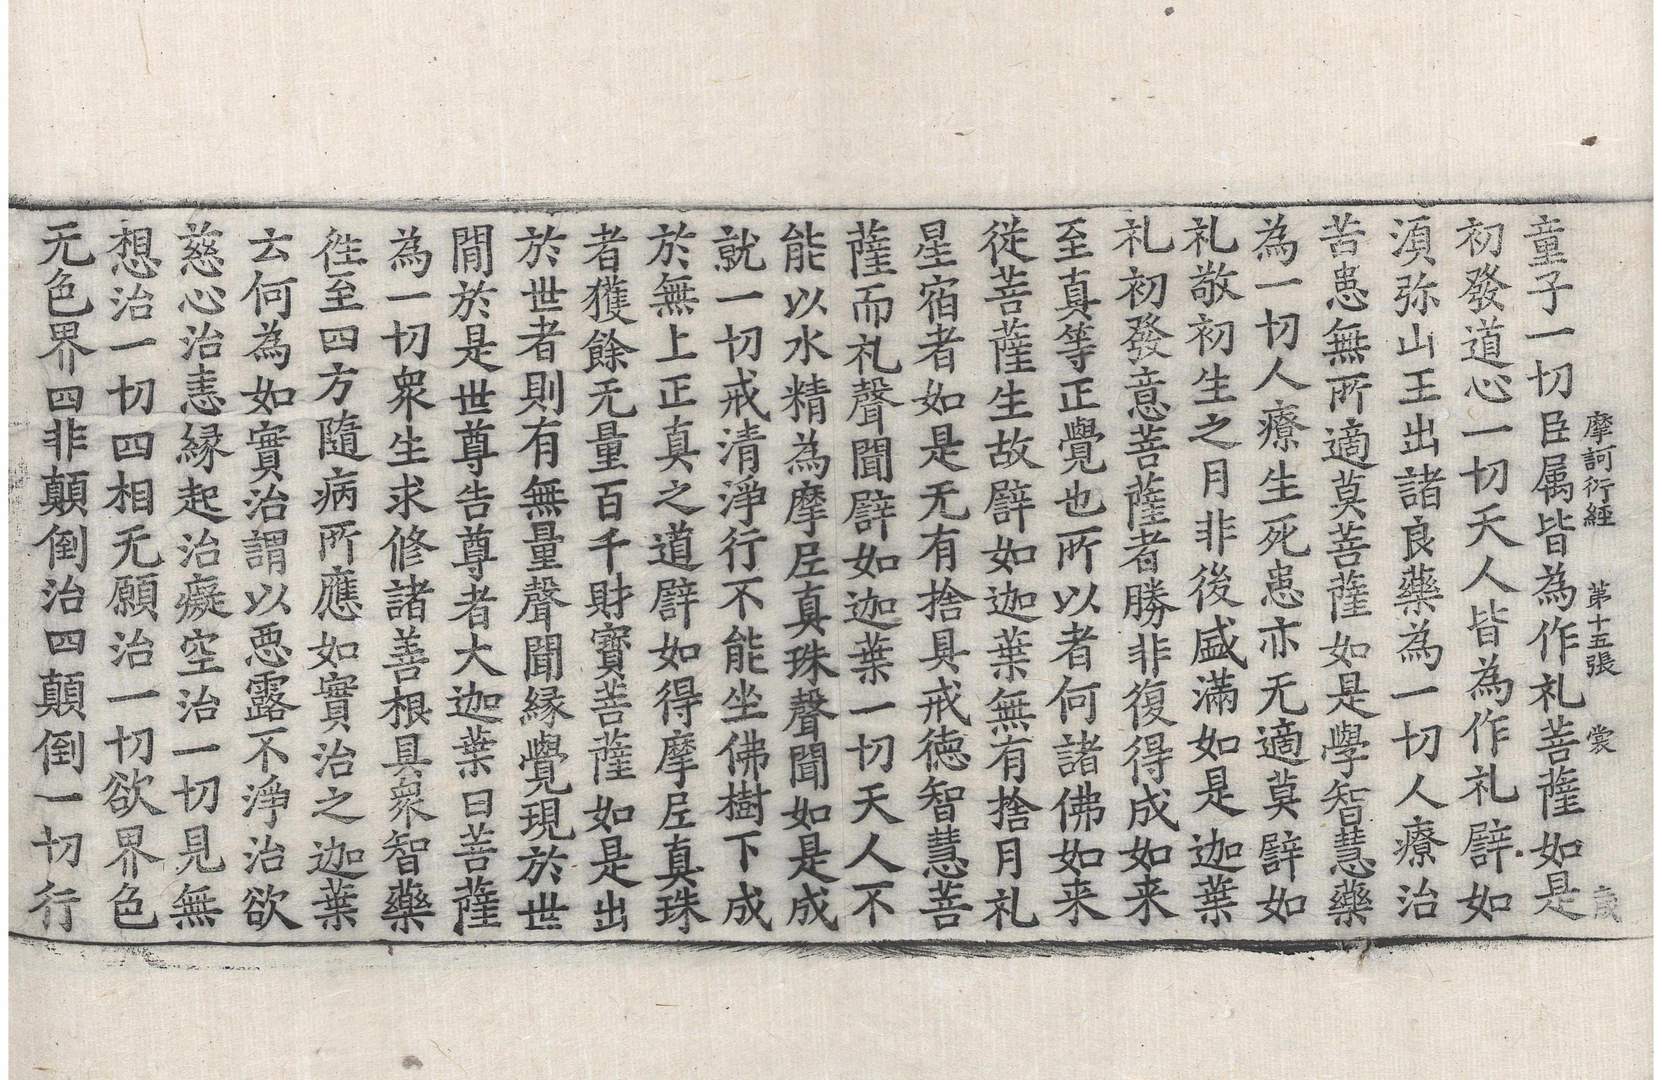 摩訶衍經 第十五張 裳
童子一切臣属皆為作礼菩薩如是
初發道心一切天人皆為作礼譬如
湏弥山王出諸良藥為一切人療治
苦患無所適莫菩薩如是學智慧藥
為一切人療生死患亦无適莫譬如
礼敬初生之月非後盛滿如是迦葉
礼初發意菩薩者勝非復得成如来
至真等正覺也所以者何諸佛如来
從菩薩生故譬如迦葉無有捨月礼
星宿者如是无有捨具戒德智慧菩
薩而礼聲聞譬如迦葉一切天人不
能以水精為摩尼真珠聲聞如是成
就一切戒清淨行不能坐佛樹下成
於無上正真之道譬如得摩尼真珠
者獲餘无量百千財寳菩薩如是出
於世者則有無量聲聞縁覺現於世
閒於是世尊告尊者大迦葉曰菩薩
為一切衆生求修諸善根具衆智藥
徃至四方隨病所應如實治之迦葉
云何為如實治謂以惡露不淨治欲
慈心治恚縁起治癡空治一切見無
想治一切四相无願治一切欲界色
无色界四非顛倒治四顛倒一切行